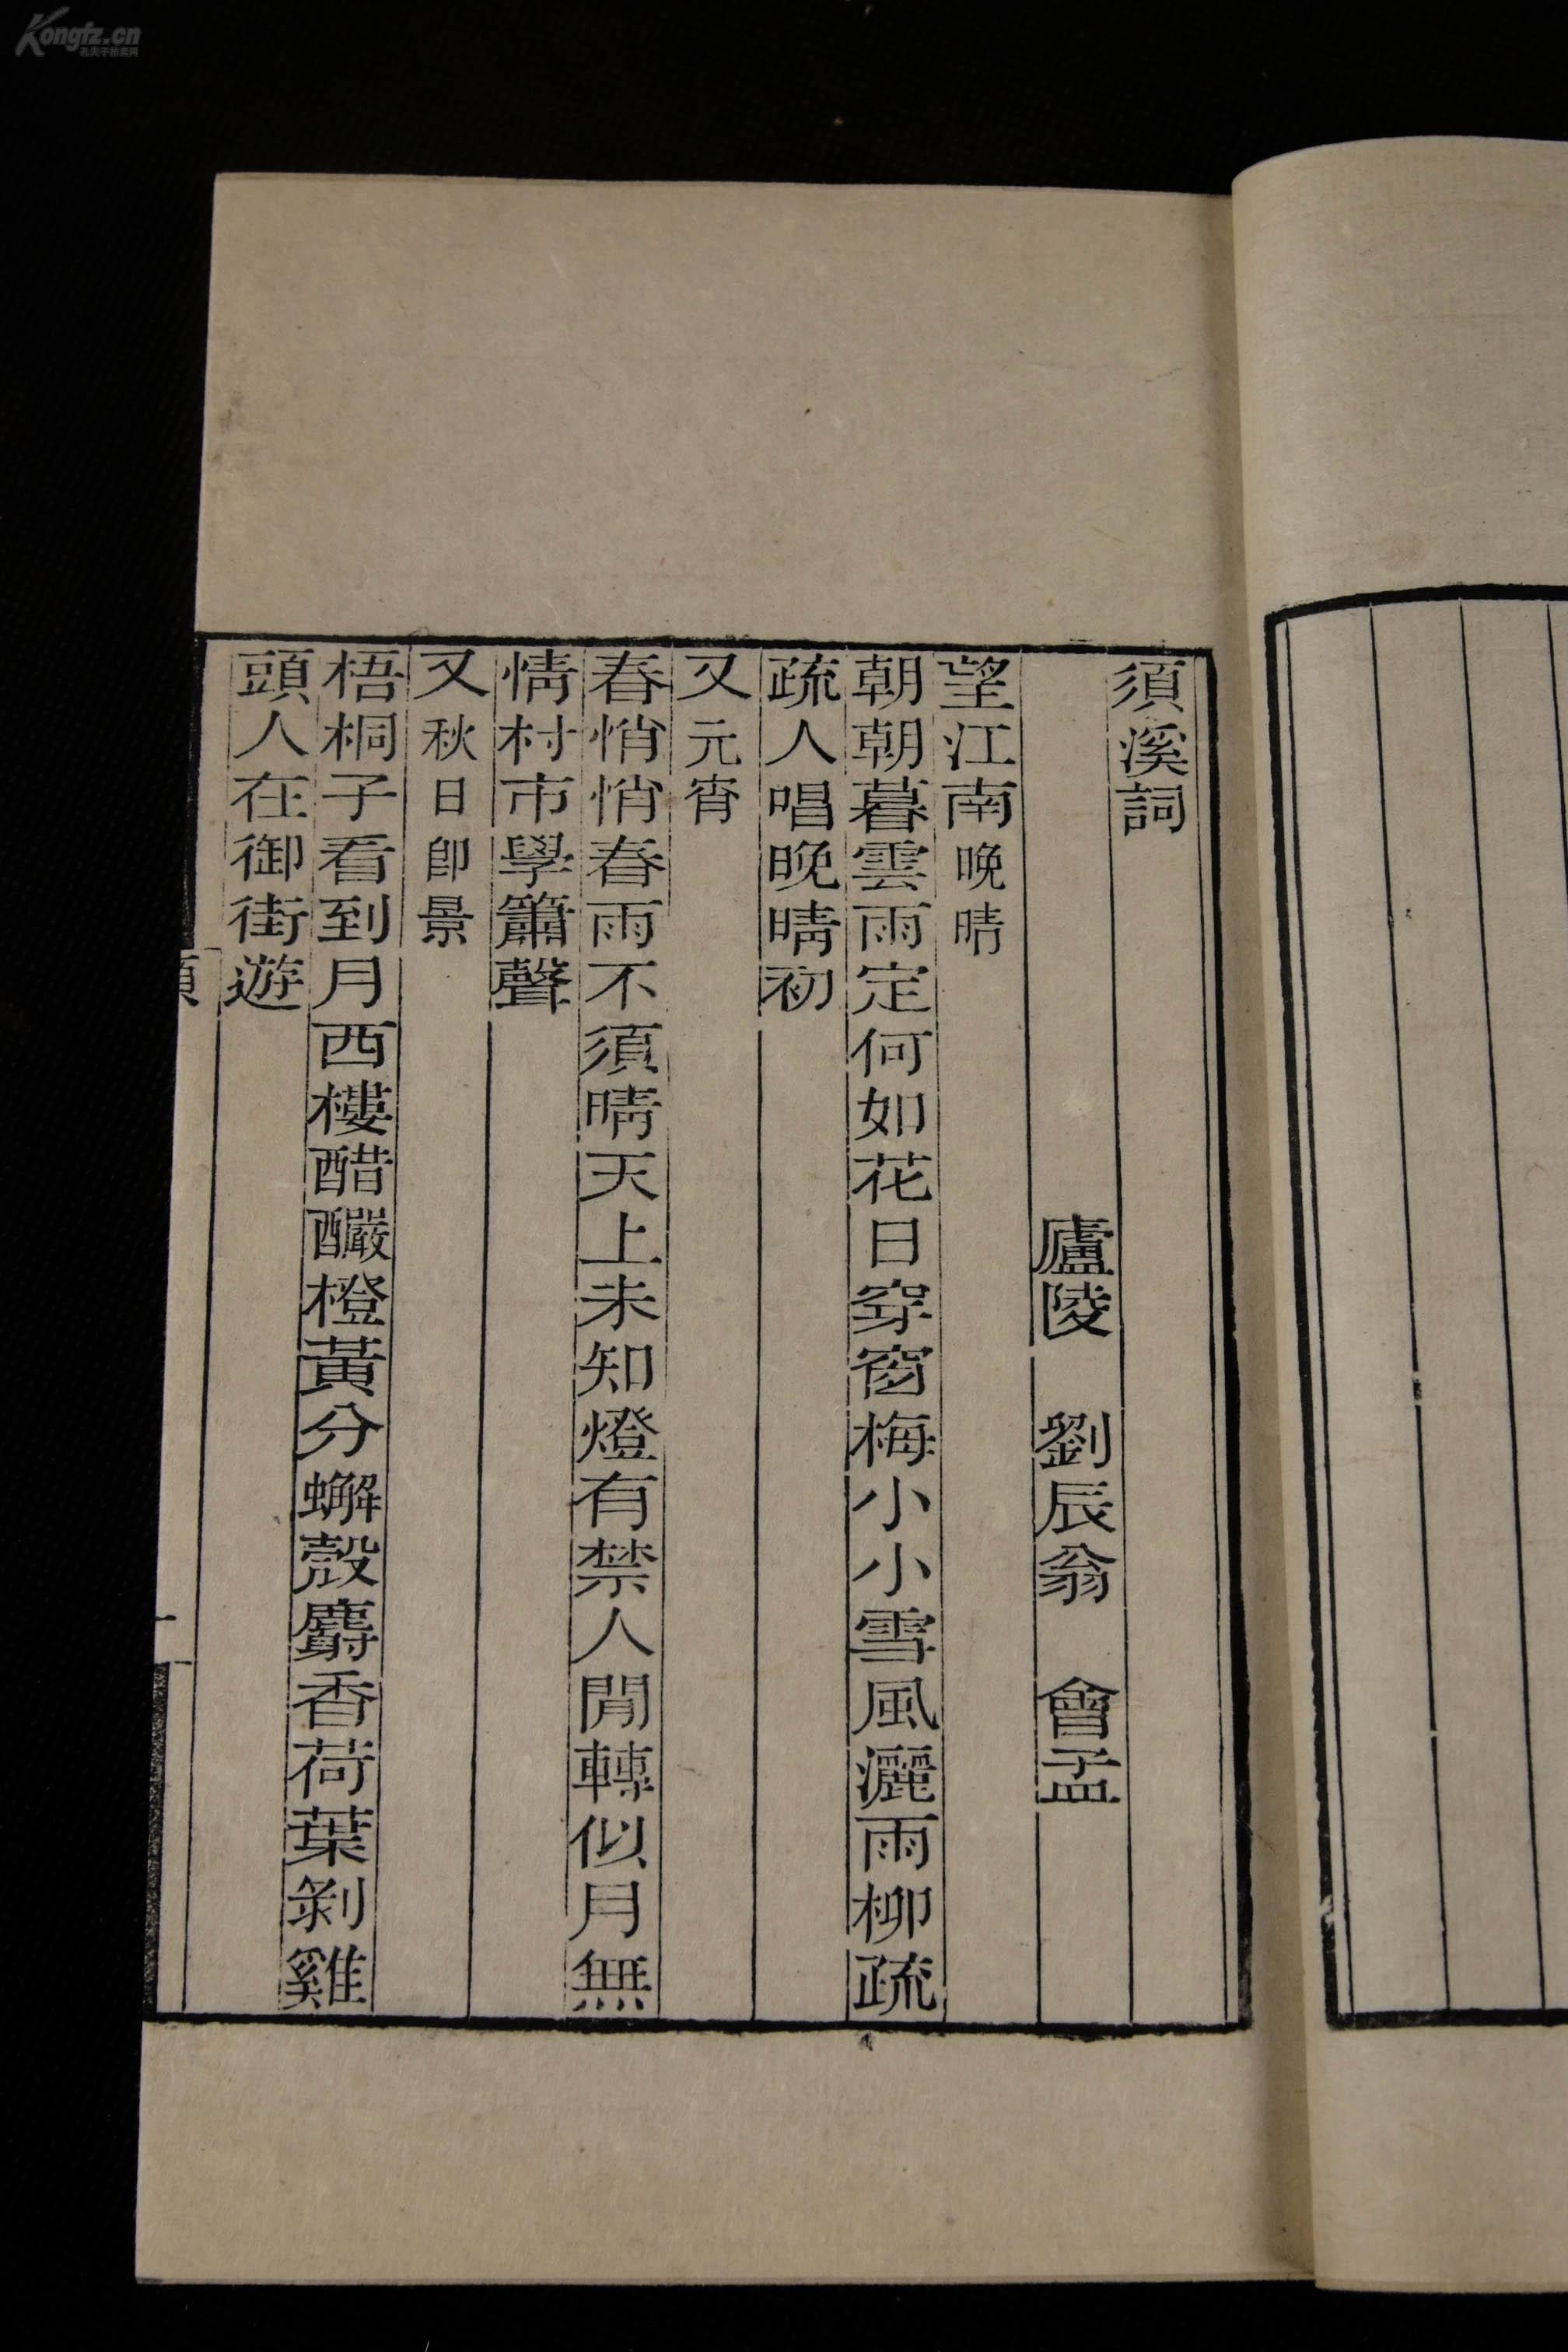 須溪詞
廬陵　劉辰翁　會孟
望江南晚晴
朝朝暮雲雨定何如花日穿窗梅小小雪風灑雨柳疏
疏人唱晚晴初
又元宵
春悄悄春雨不須晴天上未知燈有禁人閒轉似月無
情村市學簫聲
又秋日卽景
梧桐子看到月西樓醋釅橙黃分蠏殼麝香荷葉剝雞
頭人在御街遊
Kongfz.cn
孔夫子拍卖网